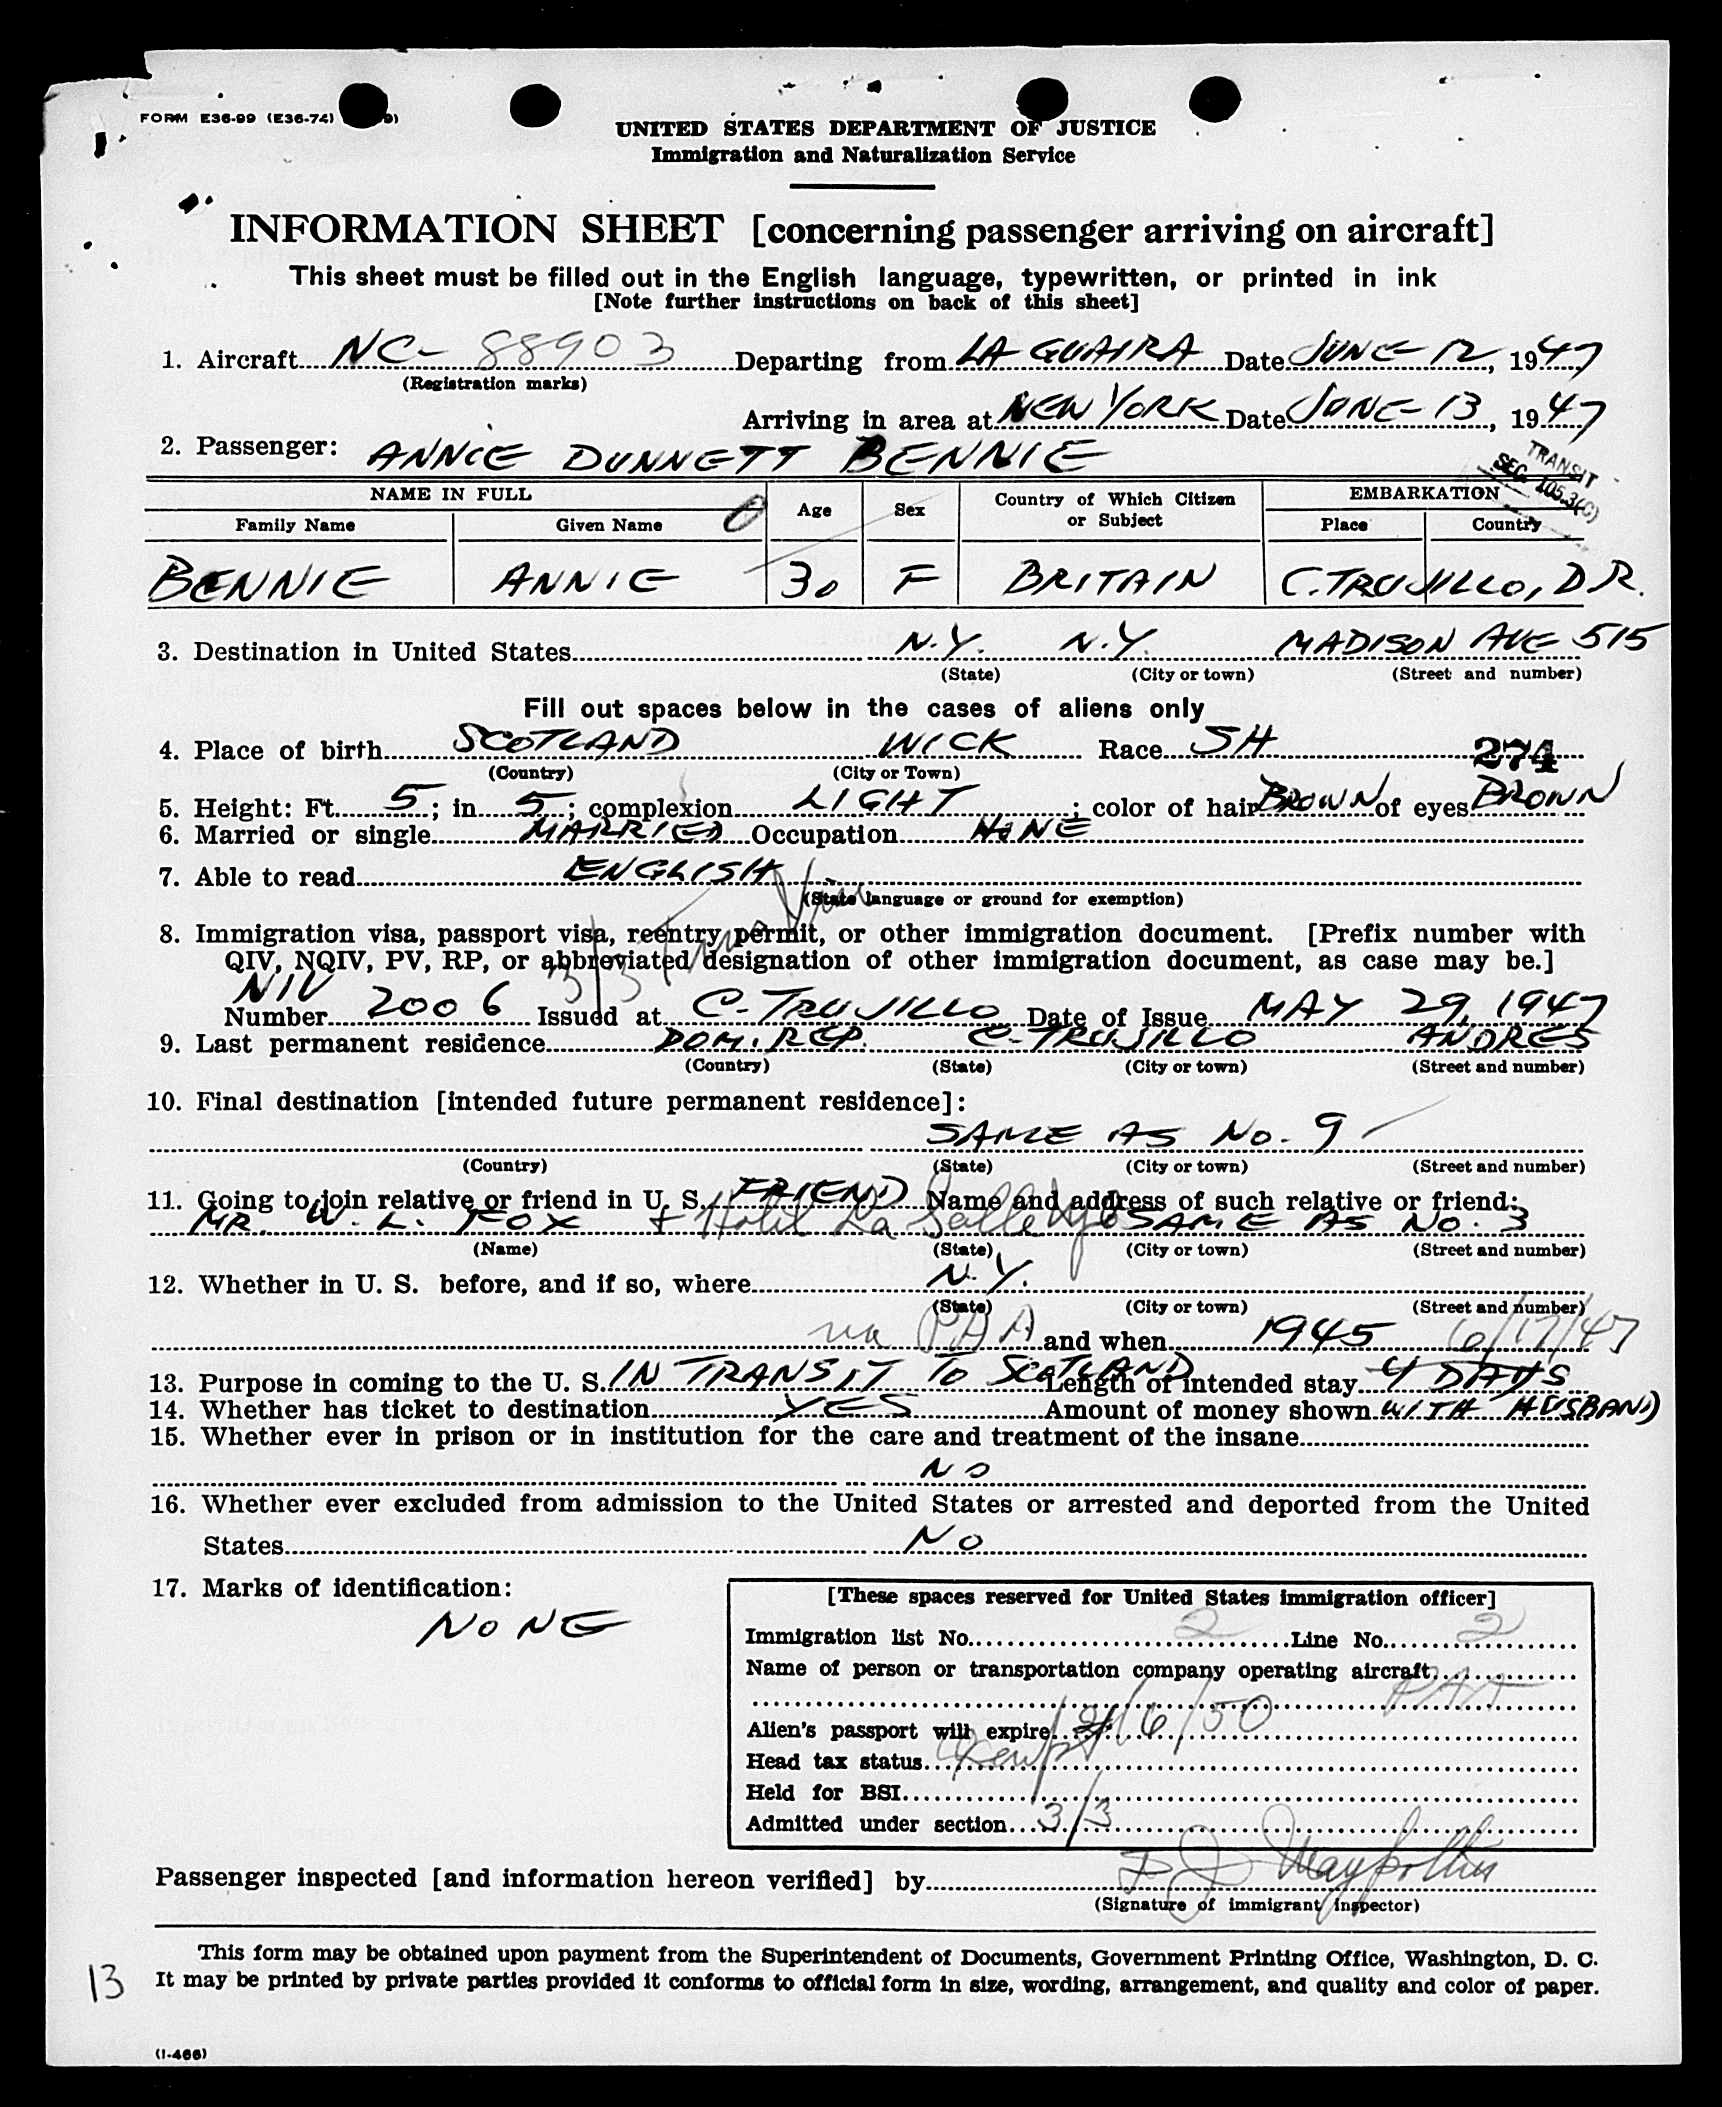 FORM E36-99 (E36-74)
UNITED STATES DEPARTMENT OF JUSTICE
Immigration and Naturalization Service
INFORMATION SHEET [concerning passenger arriving on aircraft]
This sheet must be filled out in the English language, typewritten, or printed in ink
[Note further instructions on back of this sheet]
1. Aircraft NC-88903 Departing from LA GUAIRA Date JUNE 12, 1947
(Registration marks)
Arriving in area at NEW YORK Date JUNE 13, 1947
2. Passenger: ANNIE DUNNETT BENNIE
TRANSIT
SEC. 105.3(C)
NAME IN FULL Age Sex Country of Which Citizen or Subject EMBARKATION
Family Name Given Name Place Country
BENNIE ANNIE 30 F BRITAIN C. TRUJILLO, D.R.
3. Destination in United States N.Y. N.Y. MADISON AVE 515
(State) (City or town) (Street and number)
Fill out spaces below in the cases of aliens only
4. Place of birth SCOTLAND WICK Race SH 274
(Country) (City or Town)
5. Height: Ft. 5; in 5; complexion LIGHT; color of hair BROWN of eyes BROWN
6. Married or single MARRIED Occupation NONE
7. Able to read ENGLISH
(State language or ground for exemption)
8. Immigration visa, passport visa, reentry permit, or other immigration document. [Prefix number with
QIV, NQIV, PV, RP, or abbreviated designation of other immigration document, as case may be.]
3/3
NIV
Number 2006 Issued at C. TRUJILLO Date of Issue MAY 29, 1947
9. Last permanent residence DOM. REP. C. TRUJILLO ANDRES
(Country) (State) (City or town) (Street and number)
10. Final destination [intended future permanent residence]:
SAME AS No. 9
(Country) (State) (City or town) (Street and number)
11. Going to join relative or friend in U. S. FRIEND Name and address of such relative or friend:
MR. W. L. FOX + Hotel La Salle NYC SAME AS No. 3
(Name) (State) (City or town) (Street and number)
12. Whether in U. S. before, and if so, where N.Y.
(State) (City or town) (Street and number)
via PAA and when 1945 6/17/47
13. Purpose in coming to the U. S. IN TRANSIT TO SCOTLAND Length of intended stay 4 DAYS
14. Whether has ticket to destination YES Amount of money shown WITH HUSBAND
15. Whether ever in prison or in institution for the care and treatment of the insane
NO
16. Whether ever excluded from admission to the United States or arrested and deported from the United
States NO
17. Marks of identification:
NONE
[These spaces reserved for United States immigration officer]
Immigration list No. 2 Line No. 2
Name of person or transportation company operating aircraft
PAA
Alien's passport will expire 6/50
Head tax status Exempt
Held for BSI
Admitted under section 3/3
Passenger inspected [and information hereon verified] by
(Signature of immigrant inspector)
This form may be obtained upon payment from the Superintendent of Documents, Government Printing Office, Washington, D. C.
It may be printed by private parties provided it conforms to official form in size, wording, arrangement, and quality and color of paper.
13
(I-466)